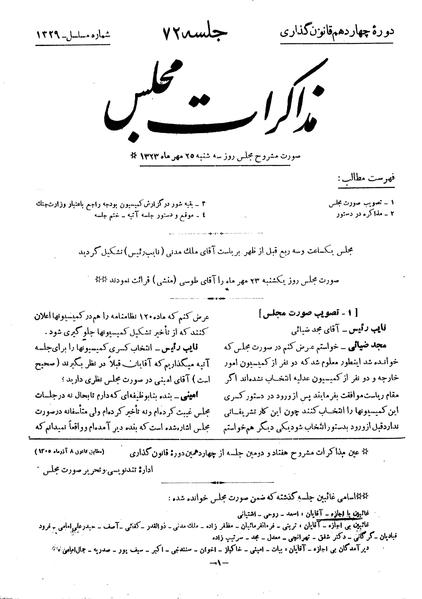 دورهٔ چهاردهم قانون گذاری
جلسه ۷۲
شماره مسلسل ـ ۱۳۲۹
مذاکرات مجلس
صورت مشروح مجلس روز سه شنبه ۲۵ مهر ماه ۱۳۲۳ *
فهرست مطالب:
۱ ـ تصویب صورت مجلس
۲ ـ مذاکره در دستور
۳ ـ بقیه شور در گزارش کمیسیون بودجه راجع باعتبار وزارت جنگ
۴ ـ موقع و دستور جلسه آتیه ـ ختم جلسه
مجلس یکساعت و سه ربع قبل از ظهر بریاست آقای ملک مدنی (نایب رئیس) تشکیل گردید
صورت مجلس روز یکشنبه ۲۳ مهر ماه را آقای طوسی (منشی) قرائت نمودند **
[ ۱ ـ تصویب صورت مجلس ]
نایب رئیس ـ آقای مجد ضیائی
مجد ضیائی ـ خواستم عرض کنم در صورت مجلس که
خوانده شد اینطور معلوم شد که دو نفر از کمیسیون امور
خارجه و دو نفر از کمیسیون عدلیه انتخاب نشده‌اند اگر
مقام ریاست موافقت بفرمایند پس از ورود در دستور کسری
این کمیسیونها را انتخاب کنند چون این کار تشریفاتی
ندارد قبل از ورود بدستور انتخاب شود یکی دیگر هم خواستم
عرض کنم که ماده ۱۲۰ نظامنامه را هم در کمیسیونها اعلان
کنند که از تأخیر تشکیل کمیسیونها جلوگیری شود.
نایب رئیس ـ انتخاب کسری کمیسیونها را برای جلسه
آتیه میگذاریم که آقایان قبلا در نظر بگیرند (صحیح
است) آقای امینی در صورت مجلس نظری دارید؟
امینی ـ بنده بنابوظیفه‌ای که دارم تابحال نه در جلسات
مجلس غیبت کرده‌ام و نه تأخیر کرده‌ام ولی متأسفانه در صورت
مجلس اشاره شده است که بنده دیر آمده‌ام و واقعاً نمیدانم که
* عین مذاکرات مشروح هفتاد و دومین جلسه از چهاردهمین دورهٔ قانون گذاری
(مطابق قانون ۸ آذر ماه ۱۳۰۵)
ادارهٔ تندنویسی و تحریر صورت مجلس
** اسامی غائبین جلسه گذشته که ضمن صورت مجلس خوانده شده:
غائبین با اجازه ـ آقایان: اسعد ـ روحی ـ اشتیانی
غائبین بی اجازه ـ آقایان: تربتی ـ فرمانفرمائیان ـ مظفر زاده ـ ملک مدنی ـ ذوالقدر ـ کفائی ـ آصف ـ حیدرعلی امامی ـ فرود
قبادیان ـ گرگانی ـ دکتر شفق ـ تهرانچی ـ معدل ـ مجد ـ سرتیپ زاده
دیر آمدگان بی اجازه ـ آقایان: بیات ـ امینی ـ خاکباز ـ اخوان ـ سنندجی ـ اکبر ـ سیف پور ـ صدریه ـ جمال امامی
ـ ۱ ـ